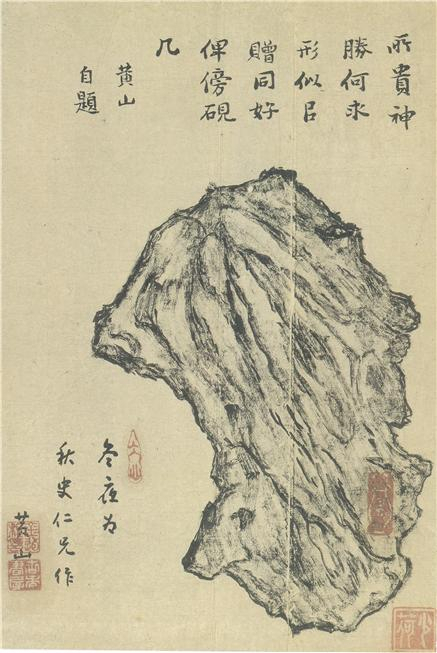 所貴神
勝何求
形似㠯
贈同好
俾傍硯
几
黄山
自題
冬夜为
秋史仁兄作
黄山